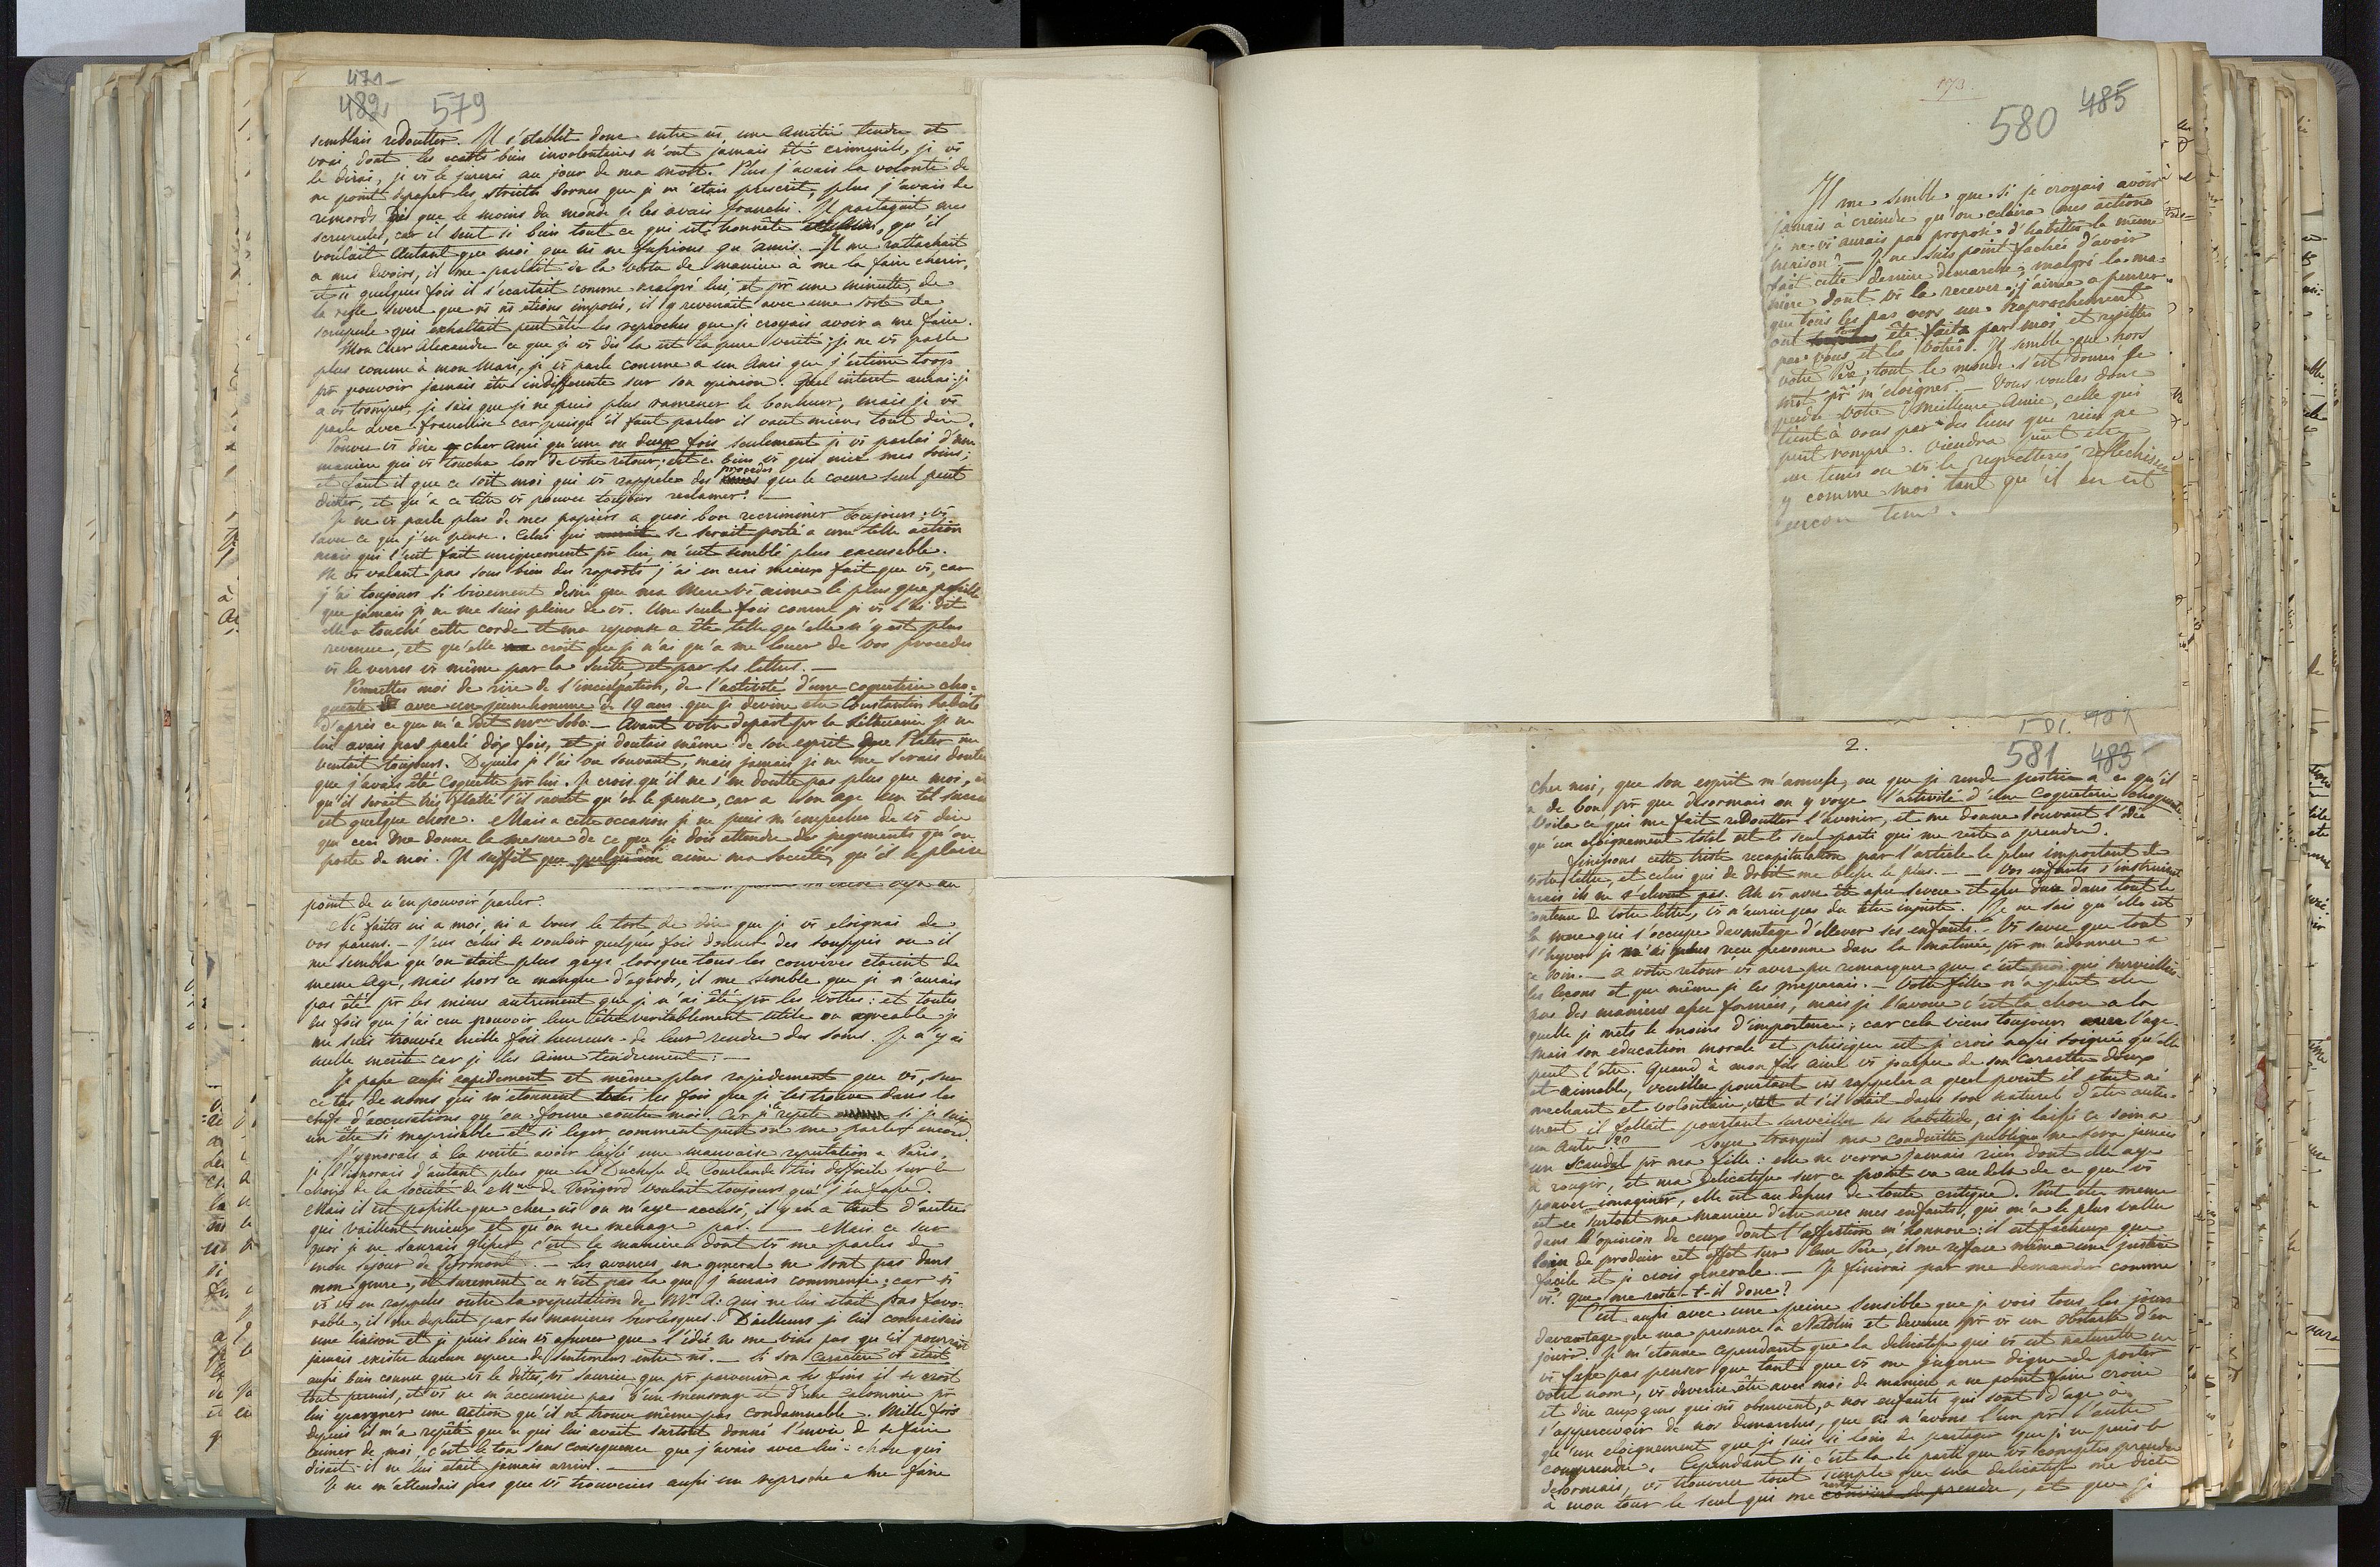 471
482 579
semblais redoutter. Il s'etablit donc entre ns une amitié tendre et
vrai, dont les ecarts bien involontaires n'ont jamais été criminels, je vs
le dirai, je vs le jurerai au jour de ma mort. Plus j'avais la volonté de
ne point depasser les stricts bornes que je m'etais prescrit, plus j'avais de
remords dès que le moins du monde je les avais franchi. Il partageait mes
scrupules, car il sent si bien tout ce que est honnête qu'il
voulait autant que moi que ns ne fussions qu'amis. Il me rattachait
a mes devoirs, il me parlait de la vertu de maniere à me la faire cherir,
et si quelques fois il s'ecartait comme malgré lui et pr une minutte, de
la regle severe que ns ns etions imposés, il y revenait avec une sorte de
scrupule qui exhaltait peut être les reproches que je croyais avoir a me faire.
Mon cher Alexandre ce que je vs dis la est la pure verité; je ne vs parle
plus comme à mon Mari, je vs parle comme a un Ami que j'estime trop
pr pouvoir jamais être indifferente sur son opinion. Quel interet aurai-je
a vs tromper, je sais que je ne puis plus ramener le bonheur, mais je vs
parle avec franchise car puisqu'il faut parler il vaut mieux tout dire.
Pouvez vs dire cher ami qu'une ou deux fois seulement je vs parlai d'une
maniere qui vs toucha lors de votre retour; est ce bien vs qui niez mes soins;
et faut il que ce soit moi qui vs rappelle des procedes que le coeur seul peut
dicter, et qu'a ce titre vs pouvez toujours reclamer? —
Je ne vs parle plus de mes papiers a quoi bon recriminer toujours; vs
savez ce que j'en pense. Celui qui se serait porté a une telle action
mais qui l'eut fait uniquement pr lui m'eut semblé plus excusable.
Ne vs valant pas sous bien des raports j'ai en ceci mieux fait que vs, car
j'ai toujours si vivement desiré que ma Mere vs aime le plus que possible
que jamais je ne me suis plains de vs. Une seule fois comme je vs l'ai dit
elle a touché cette corde et ma reponse a été telle qu'elle n'y est plus
revenue, et qu'elle croit que je n'ai qu'a me louer de vos procedes
vs le verres vs même par la suitte et par ses lettres. —
Permettes moi de rire de l'inculpation, de l'activité d'une coquetterie cho-
quante avec un jeune homme de 19 ans. que je devine etre Constantin
d'apres ce que m'a dit Mme Sobo: — Avant votre depart pr la Lithuanie je ne
lui avais pas parlé dix fois, et je doutais même de son esprit que Plater me
vantait toujours. Depuis je l'ai vu souvant, mais jamais je ne me serais douté
que j'avais été coquette pr lui. Je crois qu'il ne s'en doutte pas plus que moi, et
qu'il serait très flatté s'il savait qu'on le pense, car a son age un tel succes
est quelque chose. Mais a cette occasion je ne puis m'empecher de vs dire
que ceci me donne la mesure de ce que je dois attendre des jugements qu'on
porte de moi. Il suffit que quelqu'un aime ma societé, qu'il se plaise
point de n'en pouvoir parler.
Ne faites ni a moi, ni a vous le tort de dire que je vs eloignai de
vos parens. — J'eus celui de vouloir quelques fois donner des souppés ou il
me sembla qu'on etait plus gays lorsque tous les convives etaient de
meme age, mais hors ce manque d'egards, il me semble que je n'aurais
pas été pr les miens autrement que je n'ai été pr les vôtres: et toutes
les fois que j'ai cru pouvoir leur être veritablement utile ou agreable je
me suis trouvée mille fois heureuse de leur rendre des soins. Je n'y ai
nulle merite car je les aime tendrement: —
Je passe aussi rapidement et même plus rapidement que vs, sur
ce tas de noms qui m'etonnent tous les fois que je les trouve dans les
chefs d'accusations qu'on forme contre moi. Car je repete si je suis
un être si meprisable et si leger comment peut on me parler encore.
J'ygnorais à la verité avoir laissé une mauvaise reputation a Paris,
je l'ignorais d'autant plus que la Duchesse de Courlande très difficile sur le
choix de la societé de Mme de Perigord voulait toujours que j'en fusse.
Mais il est possible que chez ns on m'aye accusé, il y en a tant d'autres
qui vaillent mieux et qu'on ne menage pas. — Mais ce sur
quoi je ne saurais glisser c'est la maniere dont vs me parles de
mon sejour de . — Les avances en general ne sont pas dans
mon genre, et surement ce n'est pas la que j'aurais commencé; car si
vs vs en rappeles outre la reputation de Mr A: qui ne lui etait pas favo-
rable, il me deplut par ses manieres burlesques. D'ailleurs je lui connaissais
une liaison et je puis bien vs assurer que l'idée ne me vins pas qu'il pourrait
jamais exister aucun espece de sentiment entre ns. — Si son caractere vs etait
aussi bien connu que vs le dittes, vs sauriez que pr parvenir a ses fins il se croit
tout permis, et vs ne m'accuseriez pas d'un mensonge et d'une calomnie pr
lui epargner une action qu'il ne trouve même pas condamnable. Mille fois
depuis il m'a repété que ce qui lui avait surtout donné l'envie de se faire
aimer de moi, c'est le ton sans consequence que j'avais avec lui: chose qui
disait-il ne lui etait jamais arrivé. —
Je ne m'attendais pas que vs trouveriez aussi un reproche a me faire
580 485
Il me semble que si je croyais avoir
jamais à creindre qu'on eclaire mes actions
je ne vs aurais pas proposé d'habitter la même
maison? — Je ne suis point fachée d'avoir
fait cette derniere demarche; malgré la ma-
niere dont vs la recevez; j'aime a penser
que tous les pas vers un raprochement
ont été faits par moi, et rejettés
par vous et les vôtres. Il semble que hors
votre Pere, tout le monde s'est donné le
mot pr m'eloigner. — Vous voulez donc
perdre votre meilleure Amie, celle qui
tient à vous par des liens que rien ne
peut rompre. Viendra peut etre
un tems ou vs le regretteres reflechissez
y comme moi tant qu'il en est
encore tems.
2.
581 483
chez moi, que son esprit m'amuse, ou que je rende justice a ce qu'il
a de bon pr que desormais on y voye l'activité d'une coquetterie choquante.
Voila ce qui me fait redoutter l'avenir, et me donne souvant l'idée
qu'un eloignement total est le seul parti qui me reste a prendre.
Finissons cette triste recapitulation par l'article le plus important de
votre lettre, et celui qui de droit me blesse le plus. — Vos enfants s'instruisent
mais ils ne s'elevent pas. Ah vs avez été assez severe et assez dure dans tout le
contenu de votre lettre, vs n'auriez pas du être injuste. Je ne sais qu'elle est
la mere qui s'occupe davantage d'ellever ses enfants. Vs savez que tout
l'hyver je n'ai recu personne dans la matinée, pr m'adonner a
ce soin. — a votre retour vs avez pu remarquer que c'est moi qui surveillai
les lecons et que même je les preparais. — Votre fille n'a peut etre
pas des manieres assez formées, mais je l'avoue c'est la chose a la
quelle je mets le moins d'importance; car cela viens toujours avec l'age.
Mais son education morale et phisique est je crois aussi soignée qu'elle
peut l'etre. Quand à mon fils ainé vs jouissez de son caractere doux
et aimable, veuilles pourtant vs rappeler a quel point il etait né
mechant et volontaire, et s'il etait dans son naturel d'etre autre-
ment il fallait pourtant surveiller ses habitudes, ai je laissé ce soin a
un autre?? — Soyez tranquil ma conduitte publique ne sera jamais
un scandal pr ma fille: elle ne verra jamais rien dont elle aye
a rougir, et ma delicatesse sur ce point va au dela de ce que vs
pouvez imaginer, elle est au dessus de toute critique. Peut etre meme
est ce surtout ma maniere d'etre avec mes enfants, qui m'a le plus vallu
dans l'opinion de ceux dont l'affection m'honnore: il est facheux que
loin de produire cet effet sur leur Pere, il me reffuse même une justice
facile et je crois generale. — Je finirai par me demander comme
vs. que me reste-t-il donc?
C'est aussi avec une peine sensible que je vois tous les jours
davantage que ma presence à Natolin est devenue pr vs un obstacle d'en
jouir. Je m'etonne cependant que la delicatesse qui vs est naturelle ne
vs fasse pas penser que tant que vs me jugerez digne de porter
votre nom, vs devriez être avec moi de maniere a ne point faire croire
et dire aux gens qui ns observent, a nos enfants qui sont d'age à
s'appercevoir de nos demarches, que ns n'avons l'un pr l'autre
qu'un eloignement que je suis si loin de partager que je ne puis le
comprendre. Cependant si c'est la le parti que vs comptes prendre
desormais, vs trouverez tout simple que ma delicatesse me dicte
à mon tour le seul qui me reste a prendre, et que je